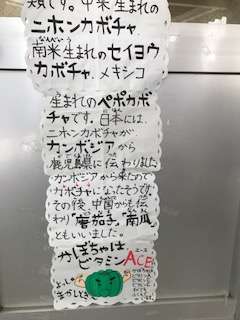 類です。中米生まれの
ニホンカボチャ、
南米生まれのセイヨウ
カボチャ、メキシコ
生まれのペポカボ
チャです。日本には、
ニホンカボチャが
カンボジアから
鹿児島県に伝わりました
カンボジアから来たので
カボチャになったそうです。
その後、中国からも伝
わり「番茄子」「南瓜」
ともいいました。
かぼちゃは
ビタミンACE!
よっしゃ
まかしとき